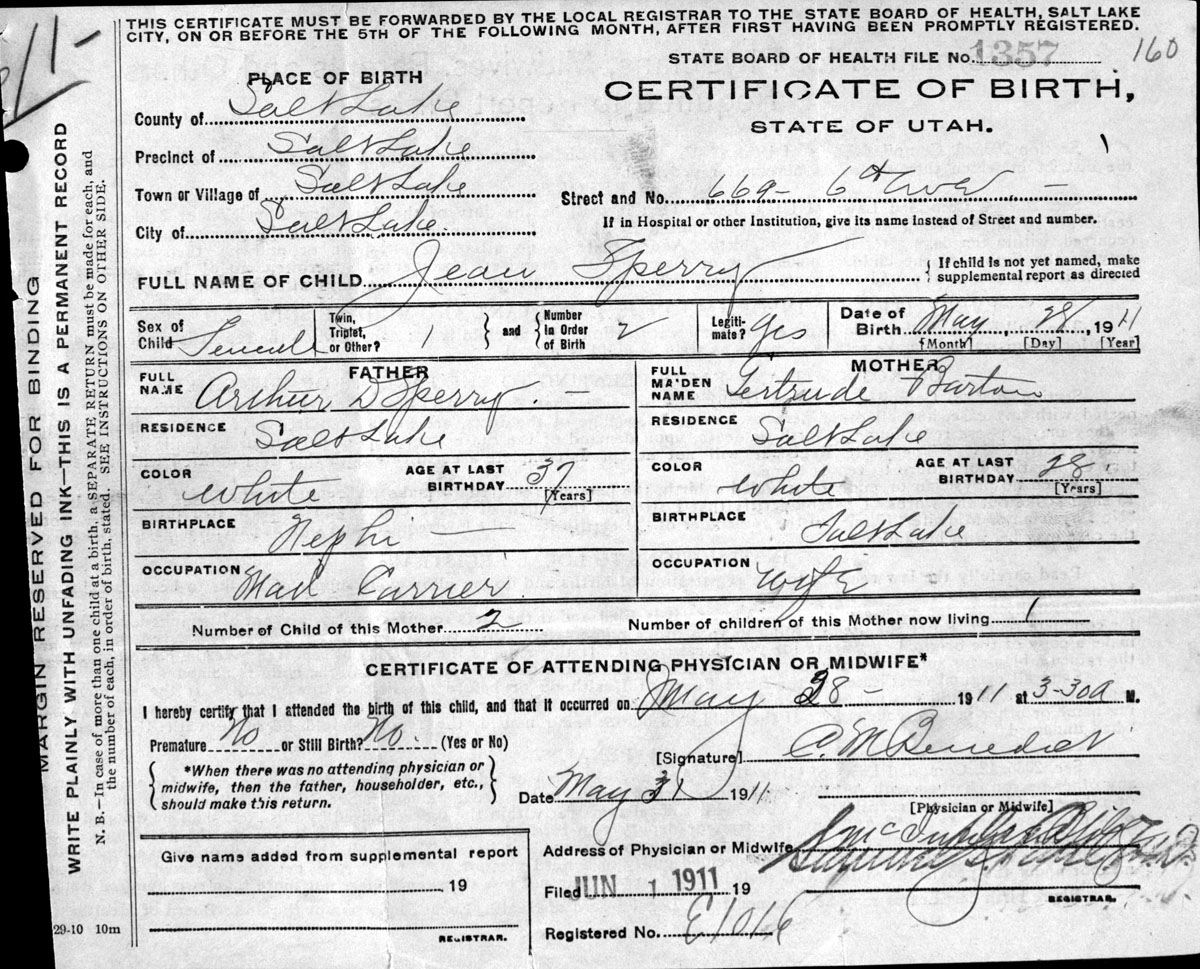 THIS CERTIFICATE MUST BE FORWARDED BY THE LOCAL REGISTRAR TO THE STATE BOARD OF HEALTH, SALT LAKE
CITY, ON OR BEFORE THE 5TH OF THE FOLLOWING MONTH, AFTER FIRST HAVING BEEN PROMPTLY REGISTERED.
STATE BOARD OF HEALTH FILE No. 1357 160
PLACE OF BIRTH
CERTIFICATE OF BIRTH,
STATE OF UTAH.
County of Salt Lake
Precinct of Salt Lake
Town or Village of Salt Lake
Street and No. 669- 6th Ave -
City of Salt Lake.
If in Hospital or other Institution, give its name instead of Street and number.
FULL NAME OF CHILD Jean Sperry
If child is not yet named, make
supplemental report as directed
Sex of Child Female
Twin, Triplet, or Other? 1 and Number in Order of Birth 2
Legitimate? Yes
Date of Birth May, 28, 1911
[Month] [Day] [Year]
FATHER
FULL NAME Arthur D Sperry. -
RESIDENCE Salt Lake
COLOR White AGE AT LAST BIRTHDAY 37 [Years]
BIRTHPLACE Nephi -
OCCUPATION Mail Carrier.
MOTHER
FULL MAIDEN NAME Gertrude Burton
RESIDENCE Salt Lake
COLOR White AGE AT LAST BIRTHDAY 28 [Years]
BIRTHPLACE Salt Lake
OCCUPATION Wife
Number of Child of this Mother 2 Number of children of this Mother now living 1
CERTIFICATE OF ATTENDING PHYSICIAN OR MIDWIFE*
I hereby certify that I attended the birth of this child, and that it occurred on May 28 - 1911 at 3-30a M.
Premature No or Still Birth? No. (Yes or No)
[Signature] C.M. Benedict
*When there was no attending physician or
midwife, then the father, householder, etc.,
should make this return.
Date May 31 1911
[Physician or Midwife]
Address of Physician or Midwife
Give name added from supplemental report
19
REGISTRAR.
Filed JUN 1 1911 19
REGISTRAR.
Registered No. E1016
29-10 10m
MARGIN RESERVED FOR BINDING
WRITE PLAINLY WITH UNFADING INK—THIS IS A PERMANENT RECORD
N. B.—In case of more than one child at a birth, a SEPARATE RETURN must be made for each, and
the number of each, in order of birth, stated. SEE INSTRUCTIONS ON OTHER SIDE.